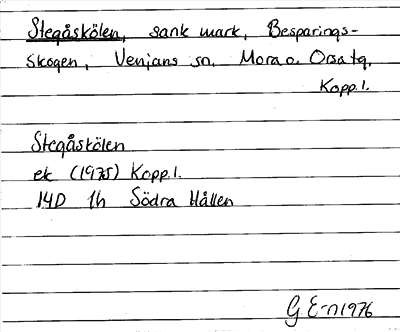 Stegåskölen, sank mark, Besparings-
skogen, Venjans sn, Mora o. Orsa tg,
Kopp. l.
Stegåskölen
ek (1975) Kopp. l.
14D 1h Södra Hållen
G E-n 1976